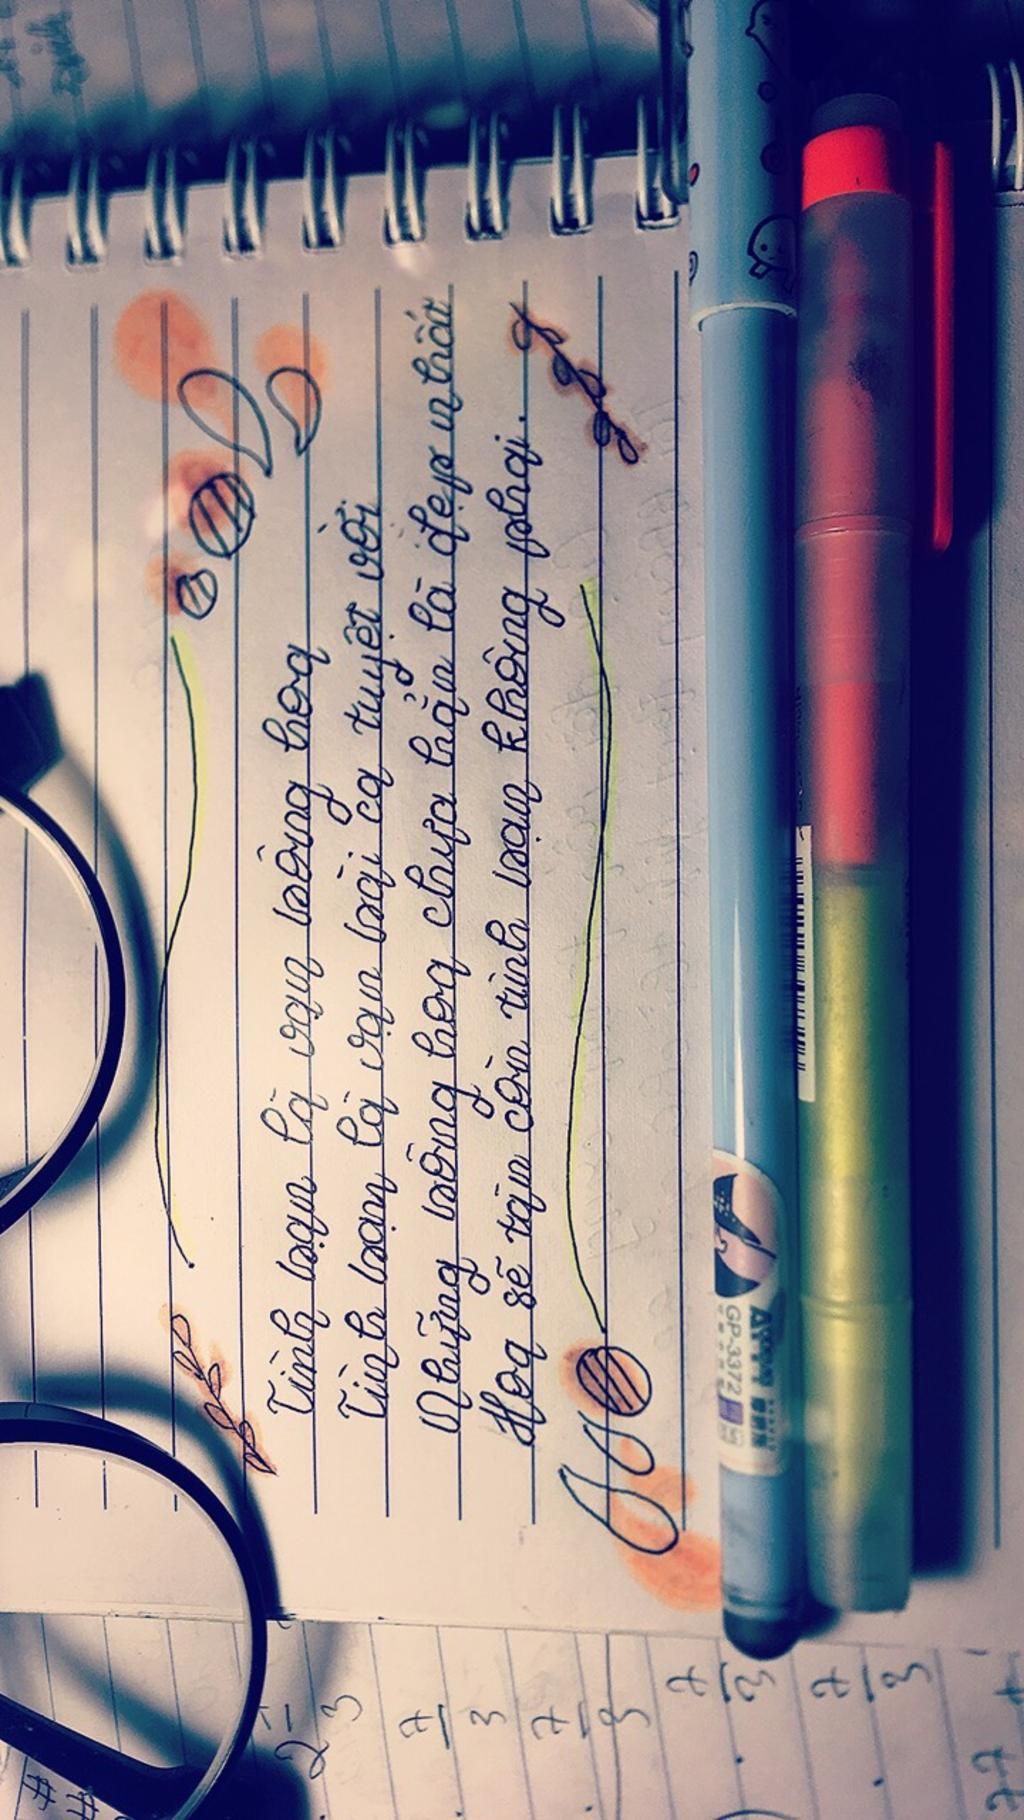 Tình bạn là vạn bông hoa
Tình bạn là vạn bài ca tuyệt vời
Những bông hoa chưa hẳn là đẹp nhất
Hoa sẽ tàn còn tình bạn không phai.
GP-3372
7
3
7
3
7
3
7
3
2
3
7
#
#